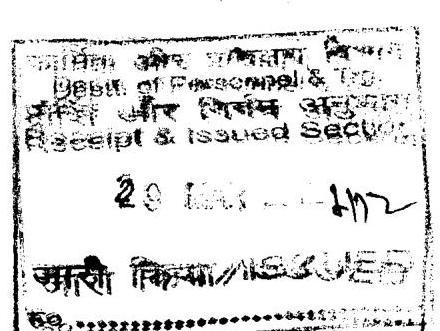 कार्मिक और प्रशिक्षण विभाग
Deptt. of Personnel & Trg.
प्राप्ति और निर्गम अनुभाग
Receipt & Issued Section
29 MAY
जारी किया/ISSUED